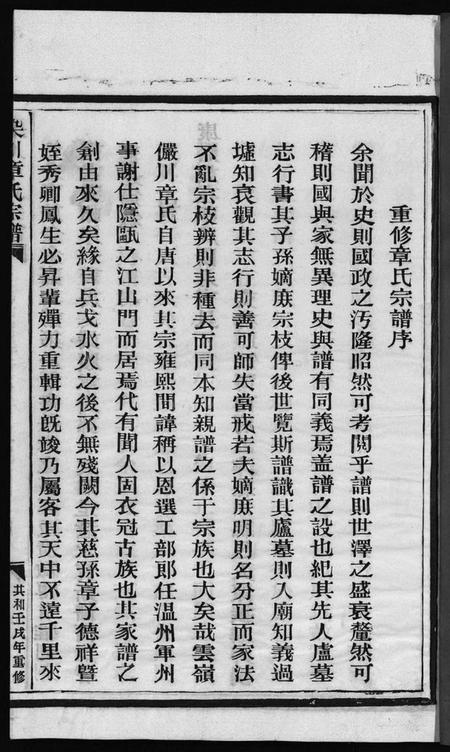 重修章氏宗譜序
余聞於史則國政之汚隆昭然可考閱乎譜則世澤之盛衰釐然可
稽則國與家無異理史與譜有同義焉盖譜之設也紀其先人廬墓
志行書其子孫嫡庶宗枝俾後世覽斯譜識其廬墓則入廟知義過
墟知哀觀其志行則善可師失當戒若夫嫡庶明則名分正而家法
不亂宗枝辨則非種去而同本知親譜之係于宗族也大矣哉雲嶺
儼川章氏自唐以來其宗雍熙間諱稱以恩選工部郎任温州軍州
事謝仕隱甌之江山門而居焉代有聞人固衣冠古族也其家譜之
創由來久矣緣自兵戈水火之後不無殘闕今其慈孫章子德祥暨
姪秀卿鳳生必昇輩殫力重輯功旣竣乃屬客其天中不遠千里來
川章氏宗譜
共和壬戌年重修